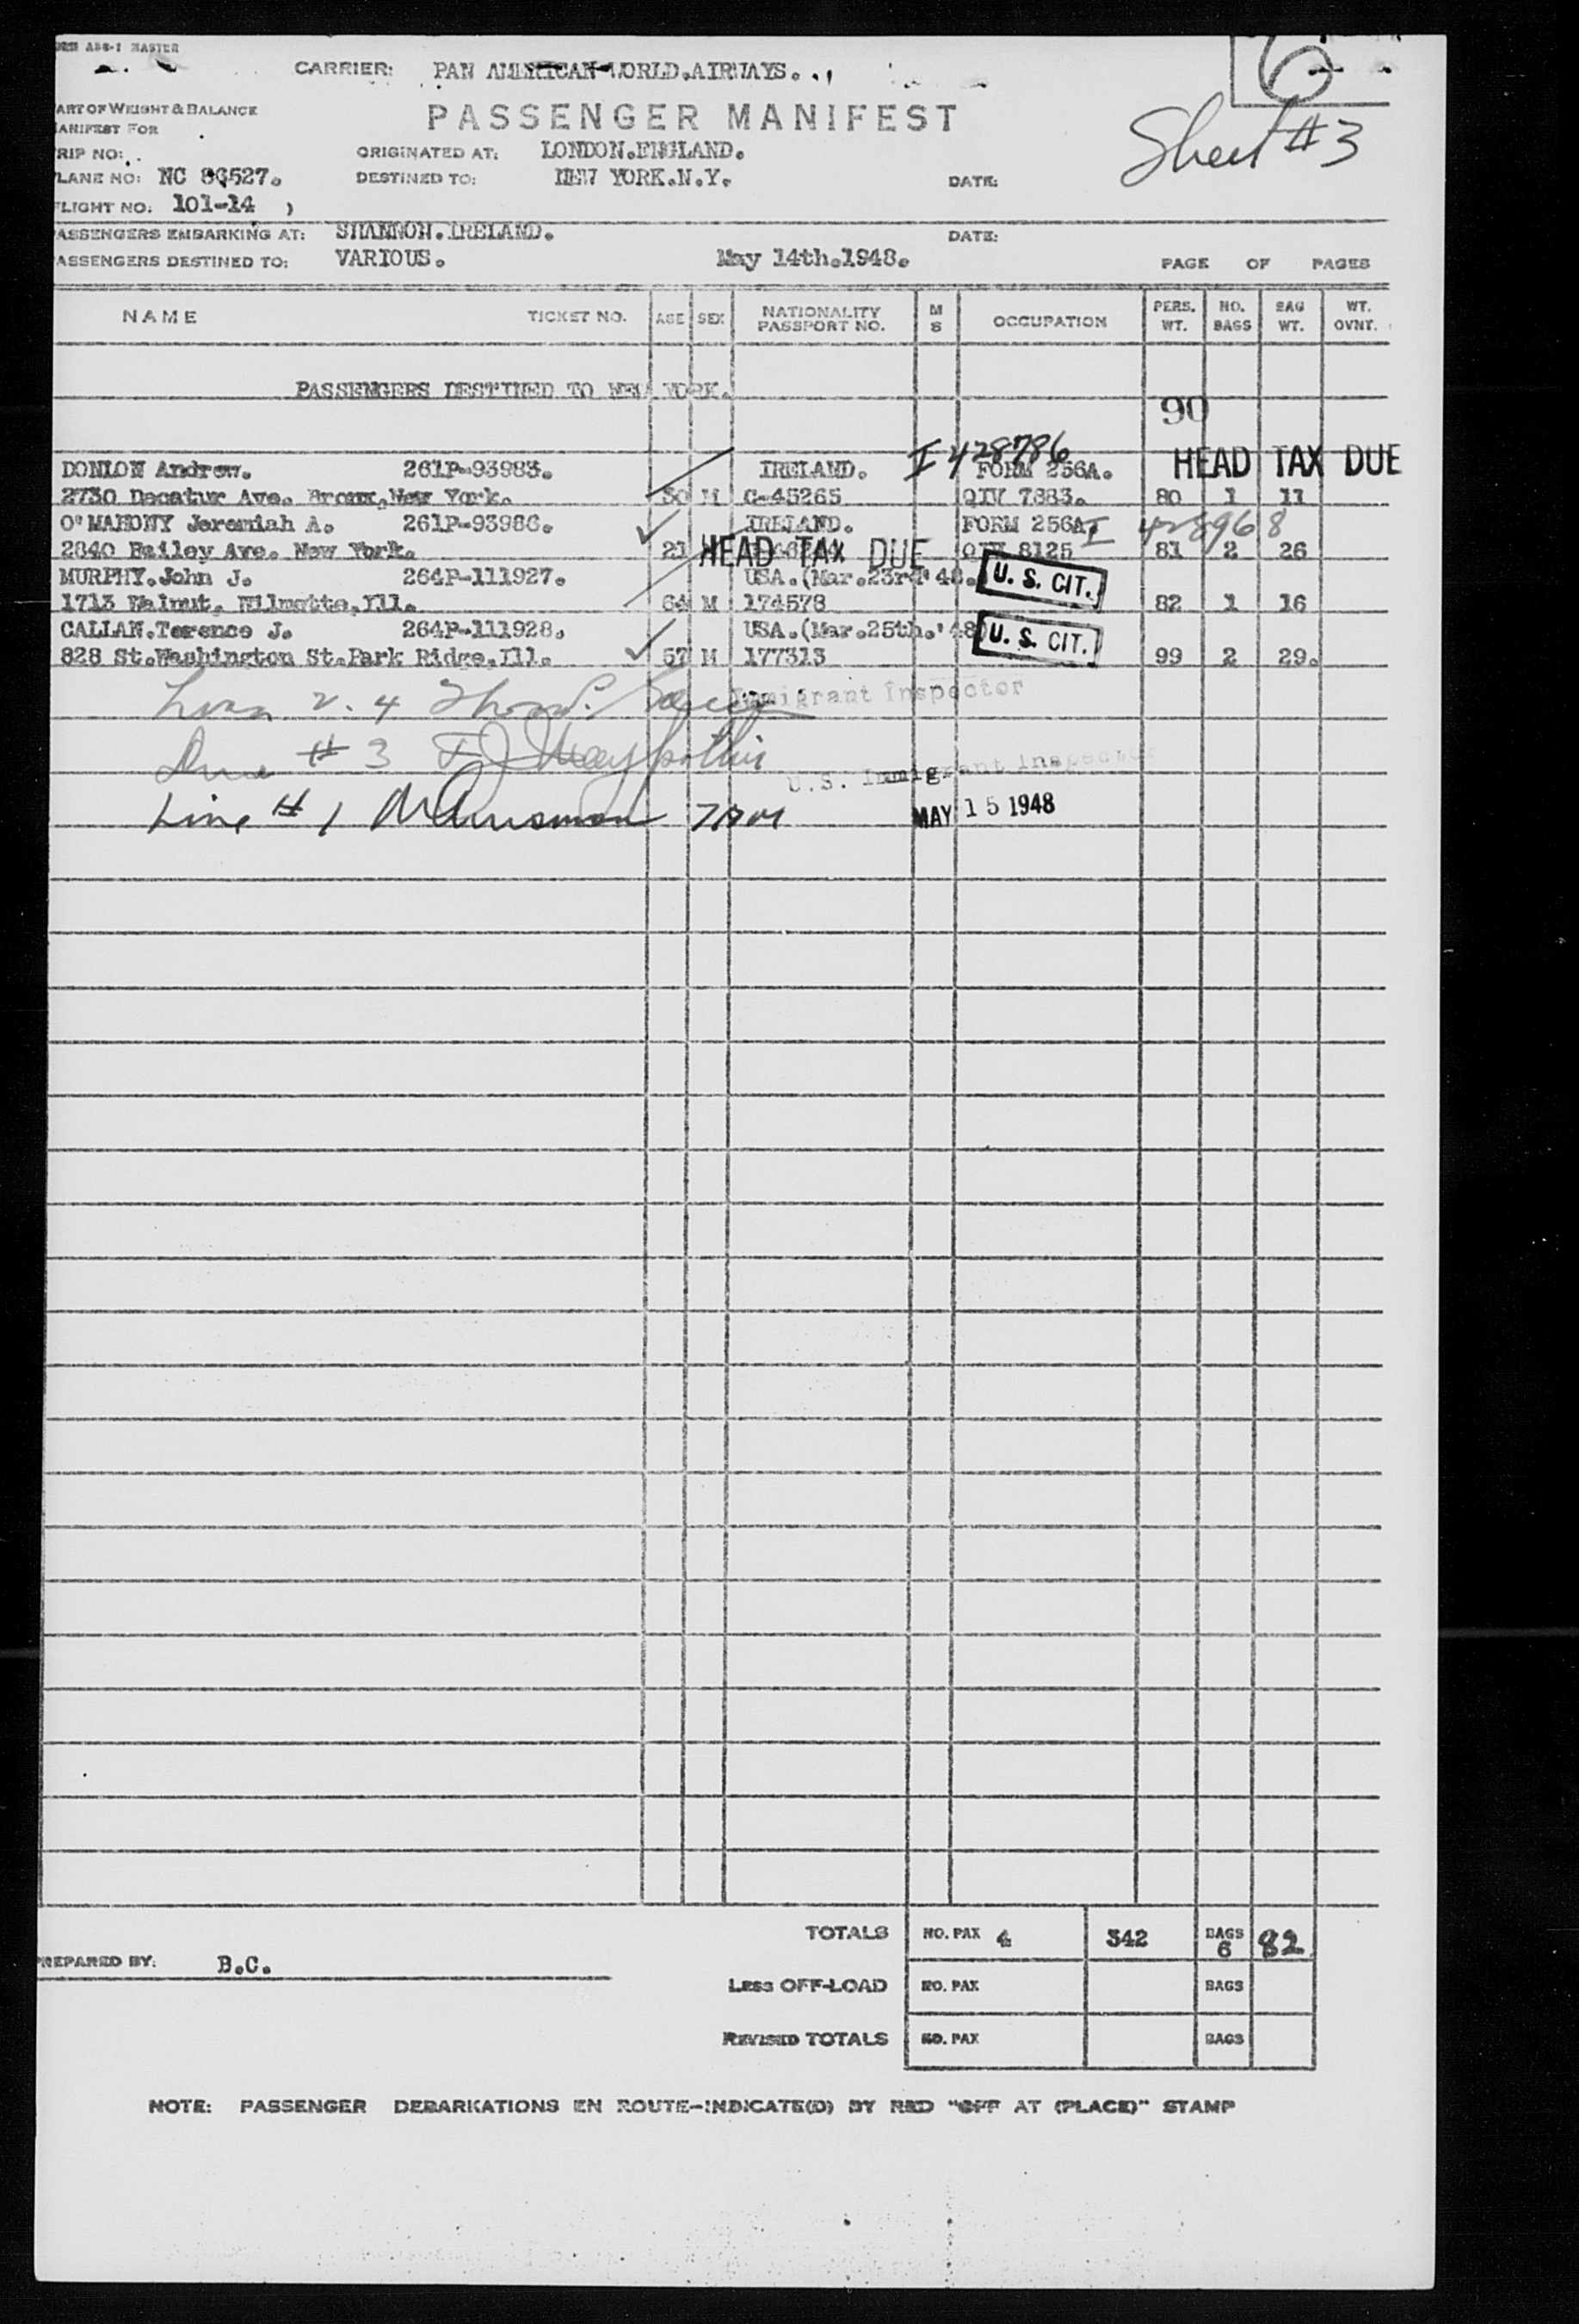 FORM ABS-1 MASTER
CARRIER: PAN AMERICAN WORLD.AIRWAYS..,
6
PART OF WEIGHT & BALANCE
MANIFEST FOR
PASSENGER MANIFEST
Sheet #3
TRIP NO:
ORIGINATED AT: LONDON.ENGLAND.
PLANE NO: NC 86527.
DESTINED TO: NEW YORK.N.Y.
DATE:
FLIGHT NO. 101-14 )
PASSENGERS EMBARKING AT: SHANNON.IRELAND.
DATE:
PASSENGERS DESTINED TO: VARIOUS.
May 14th.1948.
PAGE OF PAGES
NAME TICKET NO. AGE SEX NATIONALITY PASSPORT NO. M S OCCUPATION PERS. WT. NO. BAGS BAG WT. WT. OVNT.
PASSENGERS DESTINED TO NEW YORK.
90
I 428786
DONLON Andrew. 261P-93983. IRELAND. FORM 256A. HEAD TAX DUE
2730 Decatur Ave. Bronx,New York. 30 M C-45265 QIV 7883. 80 1 11
O'MAHONY Jeremiah A. 261P-93986. IRELAND. FORM 256A. I 428968
2840 Bailey Ave. New York. 21 HEAD TAX DUE 8125 81 2 26
MURPHY.John J. 264P-111927. USA.(Mar.23rd' 48. U. S. CIT.
1713 Walnut. Wilmette,Ill. 64 M 174578 82 1 16
CALLAN.Terence J. 264P-111928. USA.(Mar.25th.'48) U. S. CIT.
828 St.Washington St.Park Ridge,Ill. 57 M 177313 99 2 29.
2. 4 Immigrant Inspector
# 3
U.S. Immigrant Inspector
Line # 1
MAY 15 1948
TOTALS NO. PAX 4 342 BAGS 6 82
PREPARED BY: B.C.
LESS OFF-LOAD NO. PAX BAGS
REVISED TOTALS NO. PAX BAGS
NOTE: PASSENGER DEBARKATIONS EN ROUTE-INDICATE(D) BY RED "OFF AT (PLACE)" STAMP